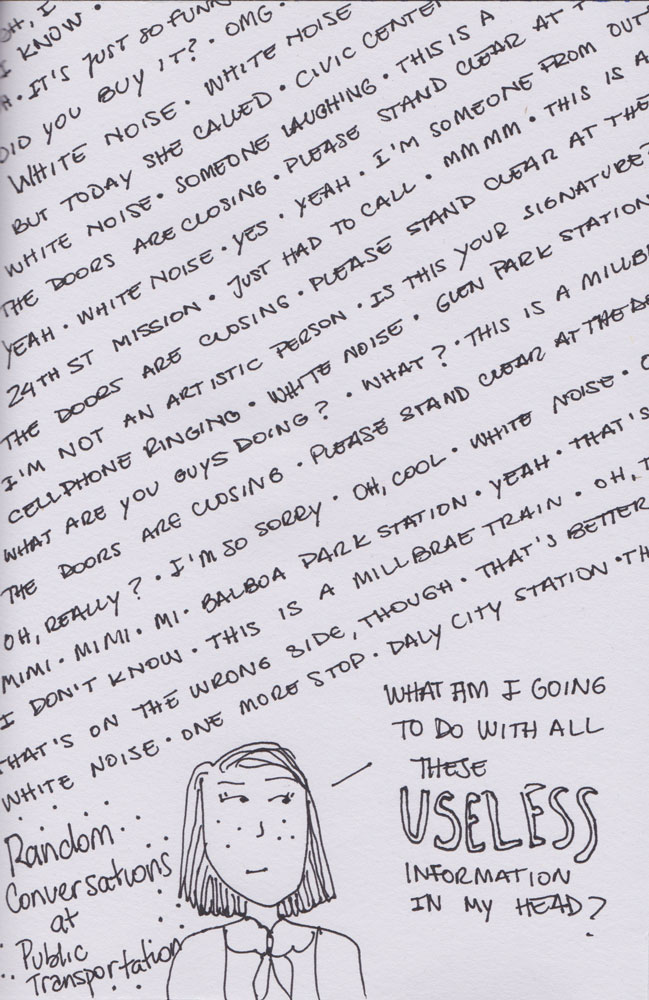 OH, I
I KNOW ·
· IT'S JUST SO FUNN
DID YOU BUY IT? · OMG ·
WHITE NOISE · WHITE NOISE
BUT TODAY SHE CALLED · CIVIC CENTER
WHITE NOISE · SOMEONE LAUGHING · THIS IS A
THE DOORS ARE CLOSING · PLEASE STAND CLEAR AT T
YEAH · WHITE NOISE · YES · YEAH · I'M SOMEONE FROM OUT
24TH ST MISSION · JUST HAD TO CALL · MMMM · THIS IS A
THE DOORS ARE CLOSING · PLEASE STAND CLEAR AT THE
I'M NOT AN ARTISTIC PERSON · IS THIS YOUR SIGNATURE?
CELLPHONE RINGING · WHITE NOISE · GLEN PARK STATION
WHAT ARE YOU GUYS DOING? · WHAT? · THIS IS A MILLB
THE DOORS ARE CLOSING · PLEASE STAND CLEAR AT THE DO
OH, REALLY? · I'M SO SORRY · OH, COOL · WHITE NOISE ·
MIMI · MIMI · MI · BALBOA PARK STATION · YEAH · THAT'S
I DON'T KNOW · THIS IS A MILLBRAE TRAIN · OH, T
THAT'S ON THE WRONG SIDE, THOUGH · THAT'S BETTER
WHITE NOISE · ONE MORE STOP · DALY CITY STATION · TH
WHAT AM I GOING
TO DO WITH ALL
THESE
USELESS
INFORMATION
IN MY HEAD?
Random
Conversations
at
Public
Transportation